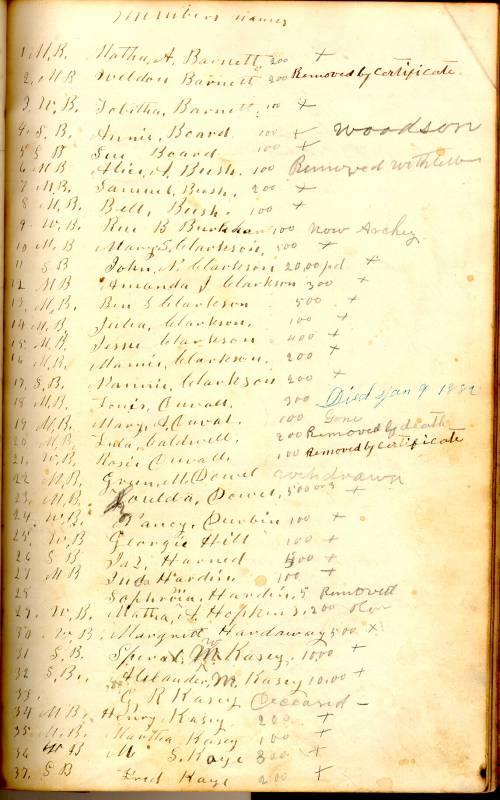 Members names
1 M, B. Matha, A. Barnett, 200 +
2, M B Weldon Barnett 200 Removed by certificate.
3, W, B. Tobitha, Barnett, 100 +
4, S. B. Annie, Board 100 + Woodson
5 S B Sue Board 100 +
6 M B Alice, A Bush, 100 Removed
7 M, B. Samuel, Bush, 200 +
8 M, B. Bell, Bush. 100 +
9 W, B. B 100 now Archey
10 M, B Mary, S, Clarkson, 500 +
11 S B John, N. Clarkson 20,00 pd +
12 M B Amanda J Clarkson 300 +
13, M, B. Ben S Clarkson 500 +
14 M, B. Julia, Clarkson, 100 +
15 M, B. Jesse Clarkson 400 +
16 M, B. Mamie, Clarkson, 200 +
17, S. B, Nannie, Clarkson 200 +
18 M B. Louis, Duvall, 300 Died Jan 9
19 M, B. Mary, A Duval, 100 Gone
20 M, B. Lida, Caldwell, 200 Removed by death
21, W, B. Rosie Duvall 100 Removed by certificate
22 M, B, Dowel withdrawn
23, M, B. Dowel, +
24 W, B. Nancy, Durbin 100 +
25, W, B Georgie Hill 100 +
26 S B Harned 500 +
27 M B Hardin, 100 +
28 Hardin, 5 Removed
29, W, B. Matha, A Hopkins, 200
30 W, B Margrett Hardaway 500 X
31 S. B. M Kasey, 1000 +
32 S, B., Alexander, M, Kasey 10,00 +
33, G, R Kasey Deceased –
34 M, B. Henry Kasey 200 +
35 M, B. Martha Kasey 100 +
36 M B M S. Kaye 300 +
37, S B Fred Kaye 200 +